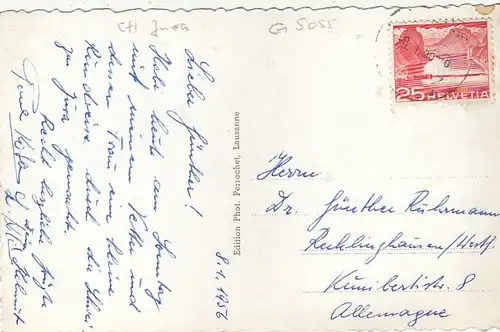 CH Jura
G 5055
25 HELVETIA
8.1.1956
Lieber Günther!
Habe heute am Sonntag
mit meinem Vetter und
dessen Frau eine kleine
Rundreise durch die Schweiz
zur Jura gemacht.
Recht herzliche Grüße
Dein
Helmut
Edition Phot. Perrochet, Lausanne
Herrn
Dr. Günther Ruhrmann
Recklinghausen/Westf.
Kunibertistr. 8
Allemagne